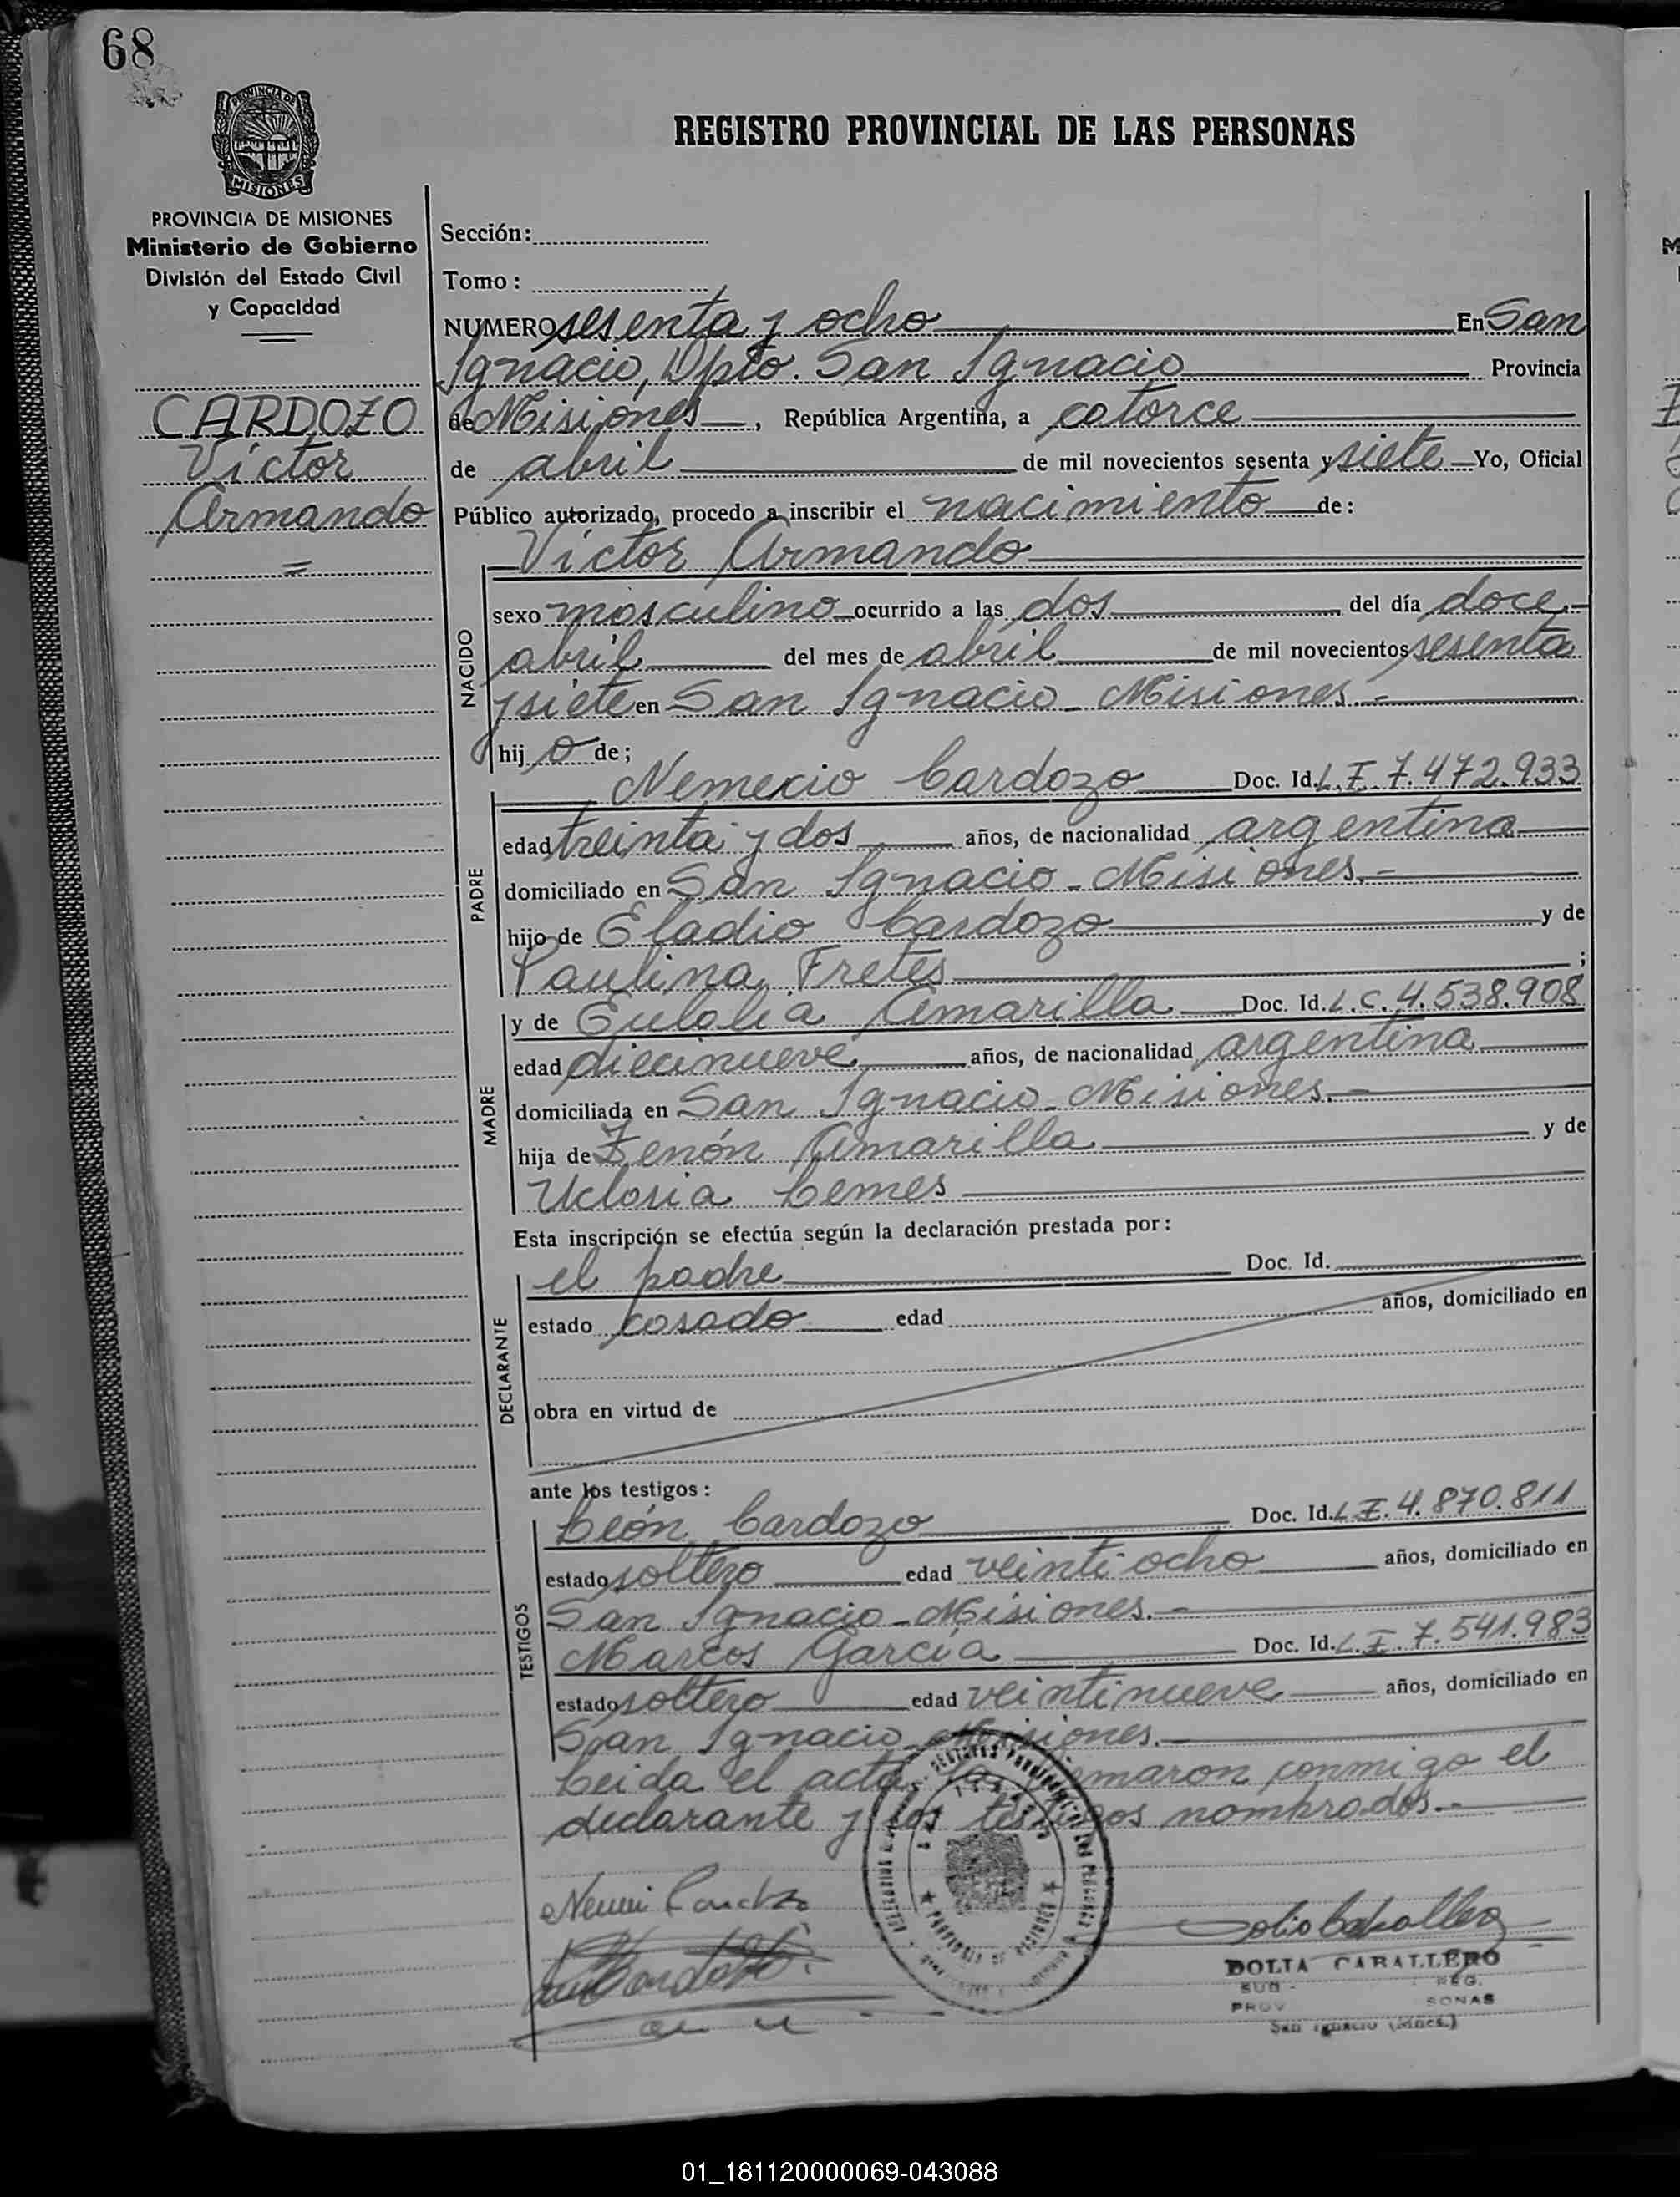 68
PROVINCIA DE
MISIONES
REGISTRO PROVINCIAL DE LAS PERSONAS
PROVINCIA DE MISIONES
Ministerio de Gobierno
División del Estado Civil
y Capacidad
CARDOZO
Víctor
Armando
Sección:
Tomo:
NUMERO sesenta y ocho En San
Ignacio, Dpto. San Ignacio Provincia
de Misiones, República Argentina, a catorce
de abril de mil novecientos sesenta y siete Yo, Oficial
Público autorizado, procedo a inscribir el nacimiento de:
Víctor Armando
NACIDO
sexo masculino ocurrido a las dos del día doce.-
abril del mes de abril de mil novecientos sesenta
y siete en San Ignacio - Misiones.-
hijo de;
PADRE
Nemecio Cardozo Doc. Id. L.E. 7.472.933
edad treinta y dos años, de nacionalidad argentina
domiciliado en San Ignacio - Misiones.-
hijo de Eladio Cardozo y de
Paulina Fretes ;
MADRE
y de Eulalia Amarilla Doc. Id. L.C. 4.538.908
edad diecinueve años, de nacionalidad argentina
domiciliada en San Ignacio - Misiones.-
hija de Zenón Amarilla y de
Uclosia Lemes
Esta inscripción se efectúa según la declaración prestada por:
DECLARANTE
el padre Doc. Id.
estado casado edad años, domiciliado en
obra en virtud de
ante los testigos:
TESTIGOS
León Cardozo Doc. Id. L.E. 4.870.811
estado soltero edad veintiocho años, domiciliado en
San Ignacio - Misiones.-
Marcos García Doc. Id. L.E. 7.541.983
estado soltero edad veintinueve años, domiciliado en
San Ignacio - Misiones.-
Leida el acta la firmaron conmigo el
declarante y los testigos nombrados.-
PROVINCIA DE MISIONES
DOLIA CABALLERO
SUB - REG.
PROV SONAS
San Ignacio (Mnes.)
01_181120000069-043088